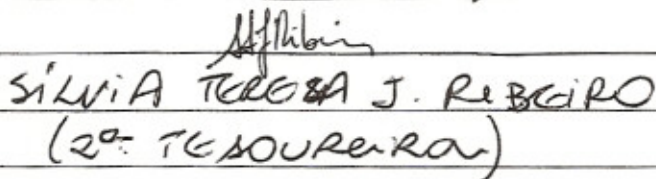 SÍLVIA TERESA J. RIBEIRO
(2ª TESOUREIRA)